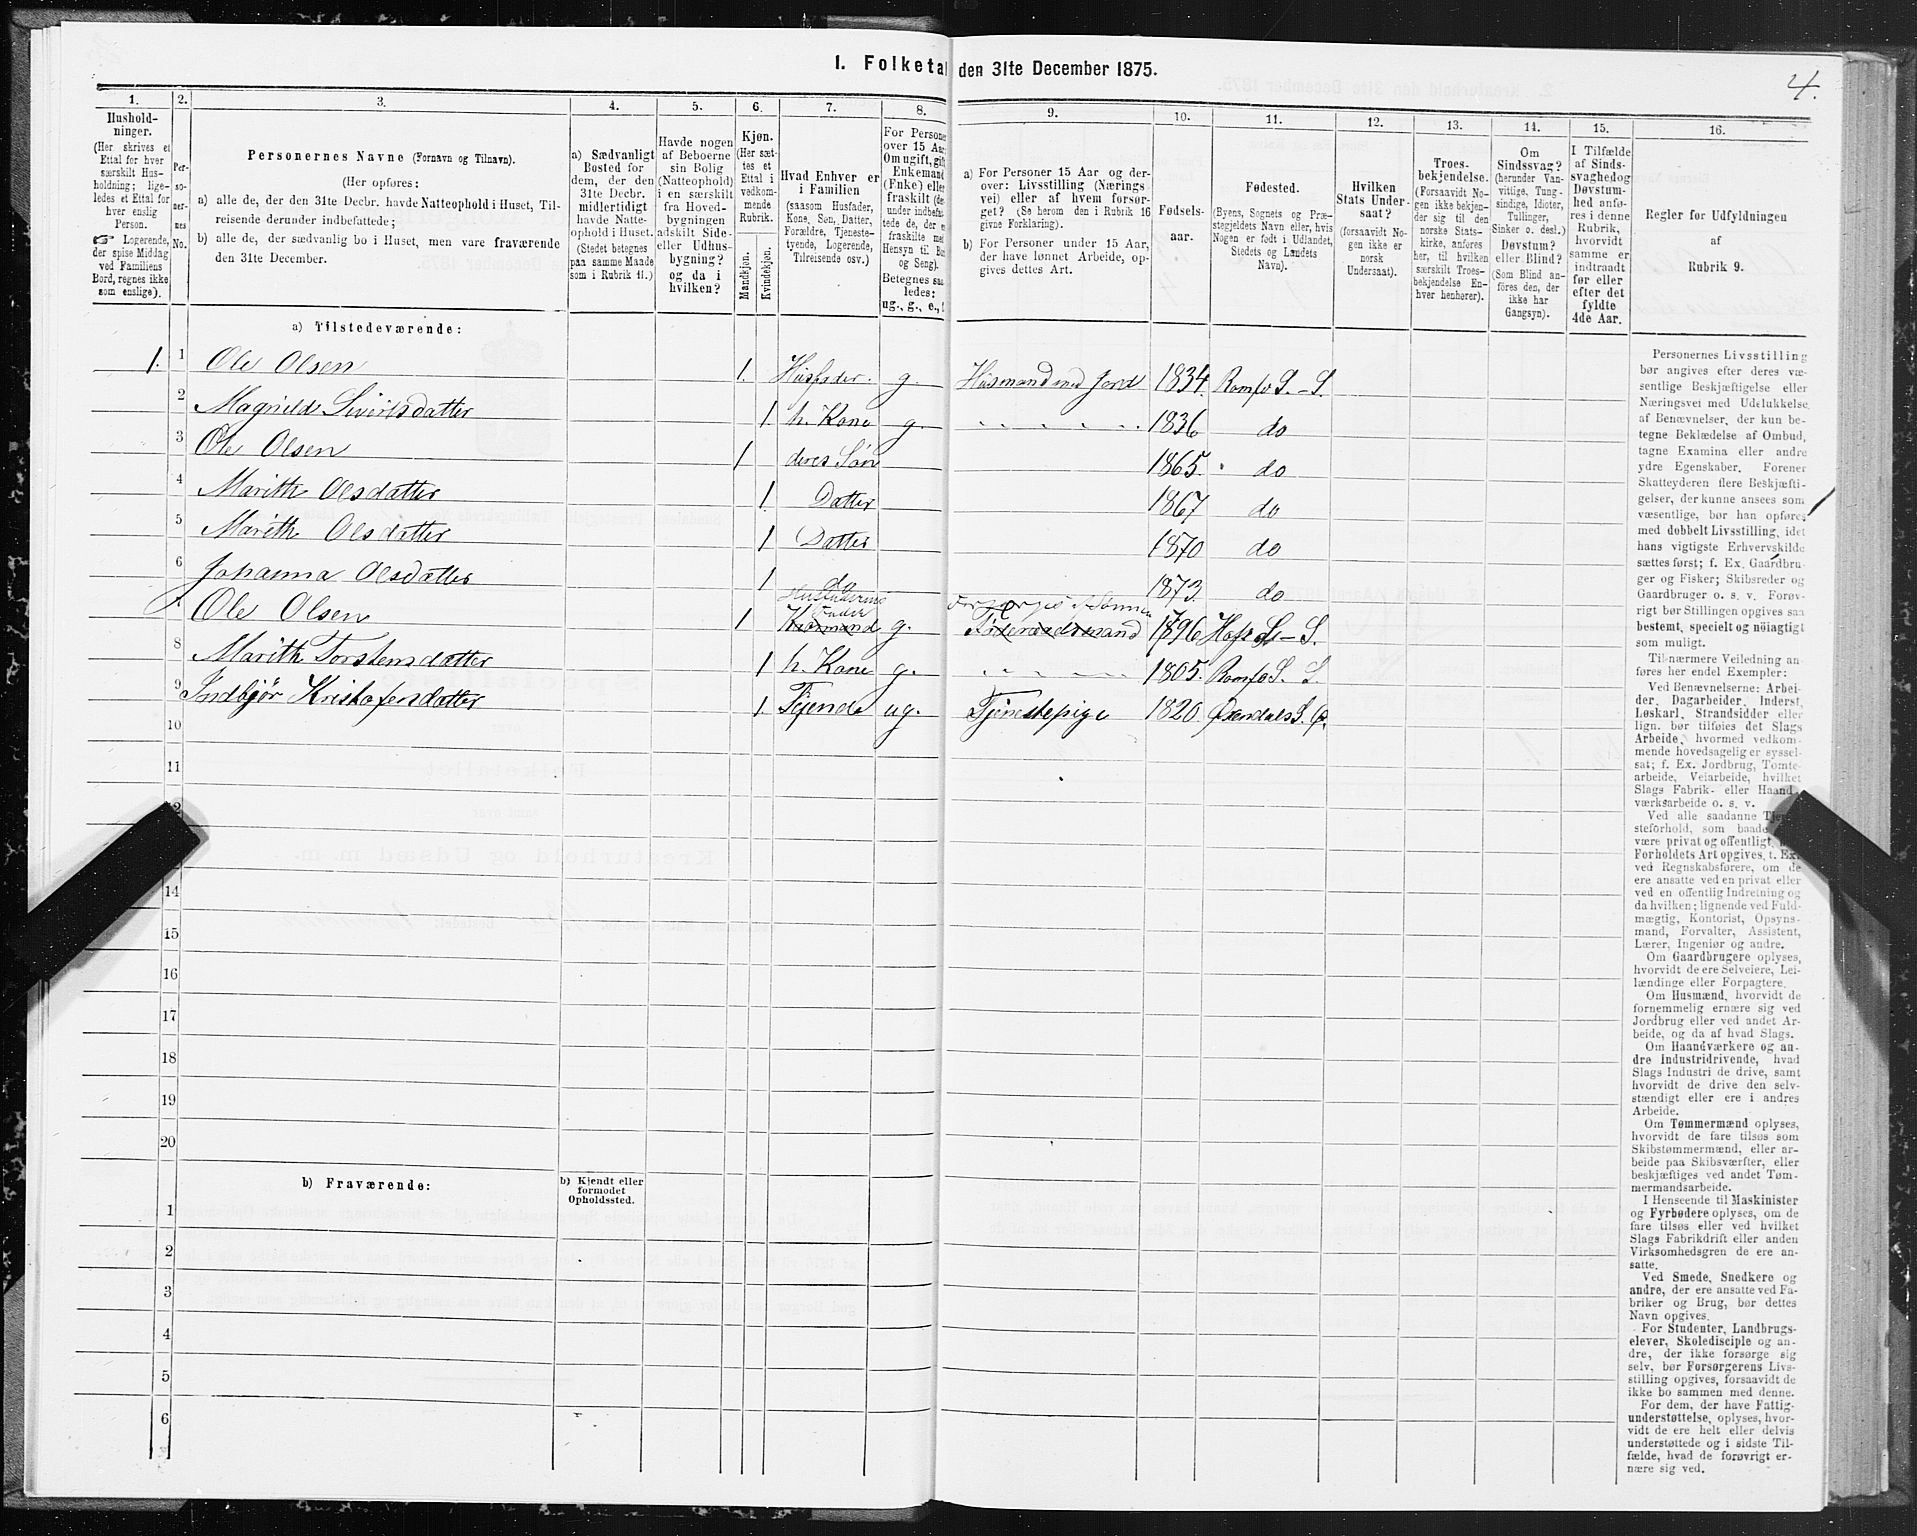 1. Folketal den 31te December 1875.
4.
1. 2. 3. 4. 5. 6. 7. 8. 9. 10. 11. 12. 13. 14. 15. 16.
Hushold-
ninger.
(Her skrives et
Ettal for hver
særskilt Hus-
holdning; lige-
ledes et Ettal for
hver enslig
Person.
☞ Logerende,
der spise Middag
ved Familiens
Bord, regnes ikke
som enslige).
Per-
so-
ner-
nes
No.
Personernes Navne (Fornavn og Tilnavn).
(Her opføres:
a) alle de, der den 31te Decbr. havde Natteophold i Huset, Til-
reisende derunder indbefattede;
b) alle de, der sædvanlig bo i Huset, men vare fraværende
den 31te December.
a) Sædvanligt
Bosted for
dem, der den
31te Decbr.
midlertidigt
havde Natte-
ophold i Huset.
(Stedet betegnes
paa samme Maade
som i Rubrik 11.)
Havde nogen
af Beboerne
sin Bolig
(Natteophold)
i en særskilt
fra Hoved-
bygningen
adskilt Side-
eller Udhus-
bygning?
og da i
hvilken?
Kjøn.
(Her sæt-
tes et
Ettal i
vedkom-
mende
Rubrik.
Mandkjøn.
Kvindekjøn.
Hvad Enhver er
i Familien
(saasom Husfader,
Kone, Søn, Datter,
Forældre, Tjeneste-
tyende, Logerende,
Tilreisende osv.)
For Persone
over 15 Aar
Om ugift, gift
Enkemand
(Enke) eller
fraskilt (de
under indbefat
tede de, der e
fraskilte med
Hensyn til Bo
og Seng).
Betegnes saa
ledes:
ug., g., e.,
a) For Personer 15 Aar og der-
over: Livsstilling (Nærings
vei) eller af hvem forsør-
get? (Se herom den i Rubrik 16
givne Forklaring).
b) For Personer under 15 Aar,
der have lønnet Arbeide, op-
gives dettes Art.
Fødsels-
aar.
Fødested.
(Byens, Sognets og Præ-
stegjeldets Navn eller, hvis
Nogen er født i Udlandet,
Stedets og Landets
Navn).
Hvilken
Stats Under-
saat?
(forsaavidt No-
gen ikke er
norsk
Undersaat).
Troes-
bekjendelse.
(Forsaavidt No-
gen ikke bekjen-
der sig til den
norske Stats-
kirke, anføres
her, til hvilken
særskilt Troes-
bekjendelse En-
hver henhører).
Om
Sindssvag?
(herunder Van-
vittige, Tung-
sindige, Idioter,
Tullinger,
Sinker o. desl.)
Døvstum?
eller Blind?
(Som Blind an-
føres den, der
ikke har
Gangsyn).
I Tilfælde
af Sinds-
svaghedog
Døvstum-
hed anfø-
res i denne
Rubrik,
hvorvidt
samme er
indtraadt
før eller
efter det
fyldte
4de Aar.
Regler for Udfyldningen
af
Rubrik 9.
a) Tilstedeværende:
1. 1 Ole Olsen 1. Husfader. g. Husmand med Jord 1834. Romfo S. - S.
2 Magnild Siverts datter 1 h. Kone g. 1836 do
3 Ole Olsen 1 deres Søn 1865. do
4 Marith Olsdatter 1. Datter 1867 do
5 Marith Olsdatter 1 Datter 1870 do
6 Johanna Olsdatter 1 do 1873. do
Husfaderens Fader
Forsørges af Sønnen
Ole Olsen 1 g. Føderaadsmand 1796 S.
8 Marith Torstensdatter 1 h. Kone g. 1805. Romfo S. S.
9 Indbjør Kristofersdatter 1 Tjende ug. Tjenestepige 1820. Øxendals S. Ø.
10
11
12
14
15
16
17
18
19
20
b) Fraværende:
b) Kjendt eller
formodet
Opholdssted.
1
2
3
4
5
6
Personernes Livsstilling
bør angives efter deres væ-
sentlige Beskjæftigelse eller
Næringsvei med Udelukkelse
af Benævnelser, der kun be-
tegne Beklædelse af Ombud,
tagne Examina eller andre
ydre Egenskaber. Forener
Skatteyderen flere Beskjæfti-
gelser, der kunne ansees som
væsentlige, bør han opføres
med dobbelt Livsstilling, idet
hans vigtigste Erhvervskilde
sættes først; f. Ex. Gaardbru-
ger og Fisker; Skibsreder og
Gaardbruger o. s. v. Forøv-
rigt bør Stillingen opgives saa
bestemt, specielt og nøiagtigt
som muligt.
Til nærmere Veiledning an-
føres her endel Exempler:
Ved Benævnelserne: Arbei-
der, Dagarbeider, Inderst,
Løskarl, Strandsidder eller
lign. bør tilføies det Slags
Arbeide, hvormed vedkom-
mende hovedsagelig er syssel-
sat; f. Ex. Jordbrug, Tomte-
arbeide, Veiarbeide, hvilket
Slags Fabrik- eller Haand-
værksarbeide o. s. v.
Ved alle saadanne Tjene-
steforhold, som baade
være privat og offentligt,
Forholdets Art opgives, t. Ex.
ved Regnskabsførere, om de
ere ansatte ved en privat eller
ved en offentlig Indretning og
da hvilken; lignende ved Fuld-
mægtig, Kontorist, Opsyns-
mand, Forvalter, Assistent,
Lærer, Ingeniør og andre.
Om Gaardbrugere oplyses,
hvorvidt de ere Selveiere, Lei-
lændinge eller Forpagtere.
Om Husmænd, hvorvidt de
fornemmelig ernære sig ved
Jordbrug eller ved andet Ar-
beide, og da af hvad Slags.
Om Haandværkere og an-
dre Industridrivende, hvad
Slags Industri de drive, samt
hvorvidt de drive den selv-
stændigt eller ere i andres
Arbeide.
Om Tømmermænd oplyses,
hvorvidt de fare tilsøs som
Skibstømmermænd, eller ar-
beide paa Skibsværfter, eller
beskjæftiges ved andet Tøm-
mermandsarbeide.
I Henseende til Maskinister
og Fyrbødere oplyses, om de
fare tilsøs eller ved hvilket
Slags Fabrikdrift eller anden
Virksomhedsgren de ere an-
satte.
Ved Smede, Snedkere og
andre, der ere ansatte ved Fa-
briker og Brug, bør dettes
Navn opgives.
For Studenter, Landbrugs-
elever, Skoledisciple og an-
dre, der ikke forsørge sig
selv, bør Forsørgerens Livs-
stilling opgives, forsaavidt de
ikke bo sammen med denne.
For dem, der have Fattig-
understøttelse, oplyses, hvor-
vidt de ere helt eller delvis
understøttede og i sidste Til-
fælde, hvad de forøvrigt er-
nære sig ved.